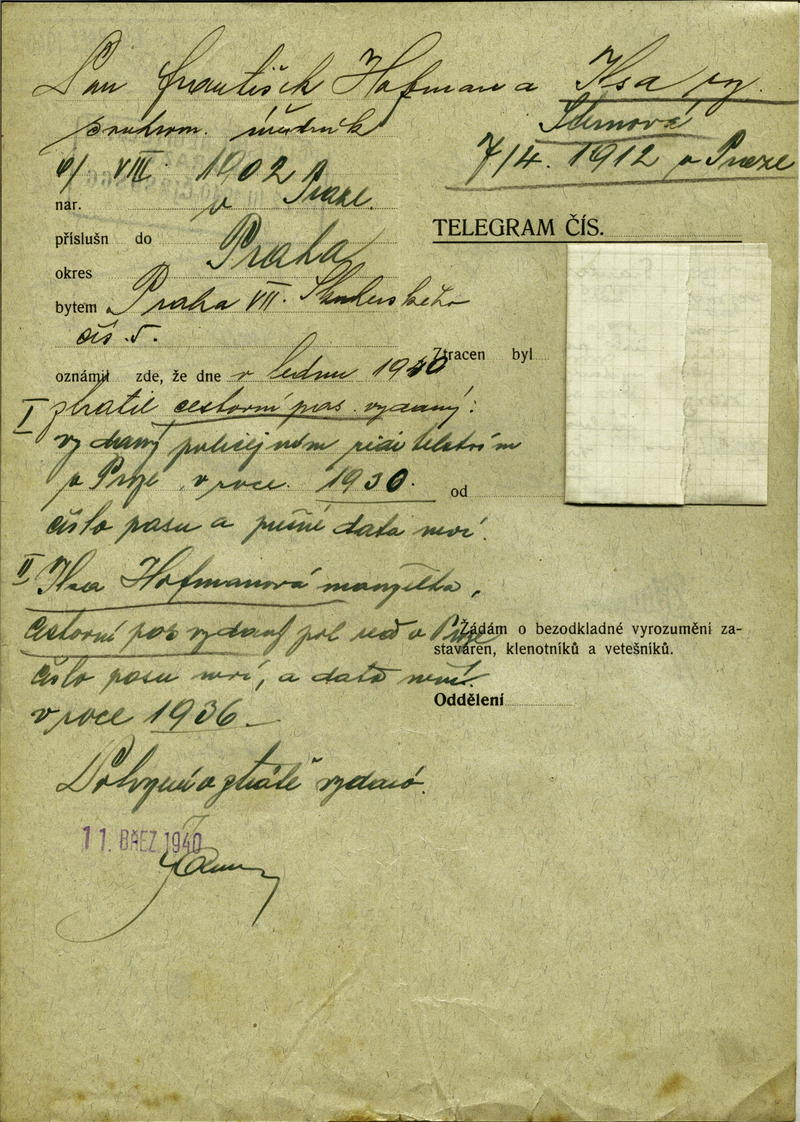 Pan František Hofman a Ilsa
soukrom. úředník
7/4. 1912 v Praze
6/ VIII. 1902
nar. v Praze.
TELEGRAM ČÍS.
příslušn do Praha
okres
bytem Praha VII.
čís. 5.
Ztracen byl
oznámil zde, že dne v lednu 1940
I ztratil cestovní pas vydaný:
vydaný policejním ředitelstvím
v Praze v roce 1930.
od
číslo pasu a přesné data neví.
II Ilsa Hofmanová manželka,
cestovní pas vydaný pol řed v Praze
Žádám o bezodkladné vyrozumění za-
staváren, klenotníků a vetešníků.
číslo pasu neví, a data neví.
Oddělení
v roce 1936
Potvrzení o ztrátě vydáno.
11. BŘEZ. 1940